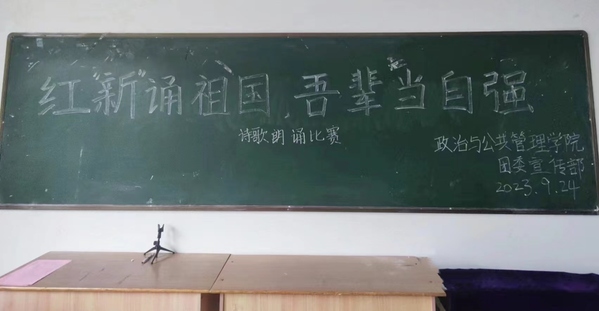 红"新"诵祖国,吾辈当自强
诗歌朗诵比赛
政治与公共管理学院
团委宣传部
2023.9.24